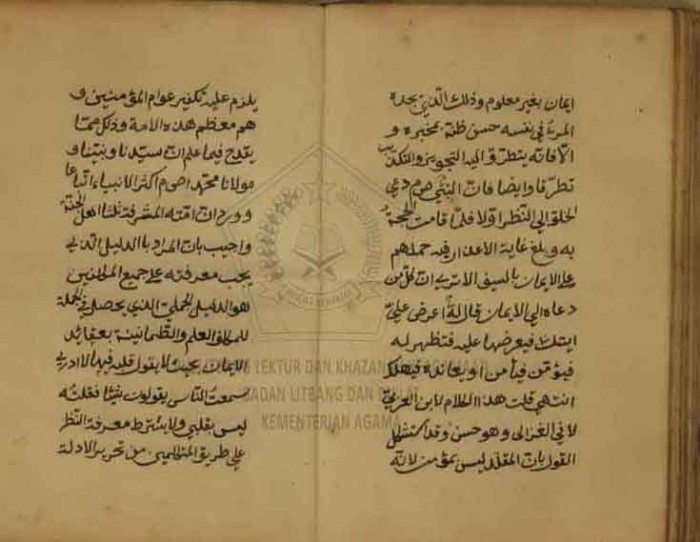 ايمان بغير معلوم وذلك الذي يجده
المرء في نفسه حسن ظنه بمخبره و
الا فانه يتطرق اليه التجويز والتكذيب
تطرقا وايضا فان النبي صم دعى
الخلق الى النظر اولا فلما قامت الحجة
به وبلغ غاية الاعذار فيه حملهم
على الايمان بالسيف الا ترى ان كل من
دعاه الى الايمان قال له اعرض علي
ايتك فيعرضها عليه فتظهر له
فيؤمن فيأمن او يعاند فيهلك
انتهى قلت هذا الكلام لابن العربي
لا في الغزالي وهو حسن وقد استشكل
القول بان المقلد ليس بمؤمن لانه
يلزم عليه تكفير عوام المؤمنين و
هم معظم هذه الامة وذلك مما
يقدح فيما علم ان سيدنا ونبينا و
مولانا محمدا صوم اكثر الانبياء اتباعا
وورد ان امته المشرفة ثلثا اهل الجنة
واجيب بان المراد بالدليل الذي
يجب معرفته على جميع المكلفين
هو الدليل الجملي الذي يحصل في الجملة
للمكلف العلم والطمانينة بعقائد
الايمان بحيث لا يقول قلبه فيها لا ادري
سمعت الناس يقولون شيئا فقلته
ليس بقلبي ولا يشترط معرفة النظر
على طريق المتكلمين من تحرير الادلة
LEKTUR DAN KHAZANAH
BADAN LITBANG DAN DIKLAT
KEMENTERIAN AGAMA